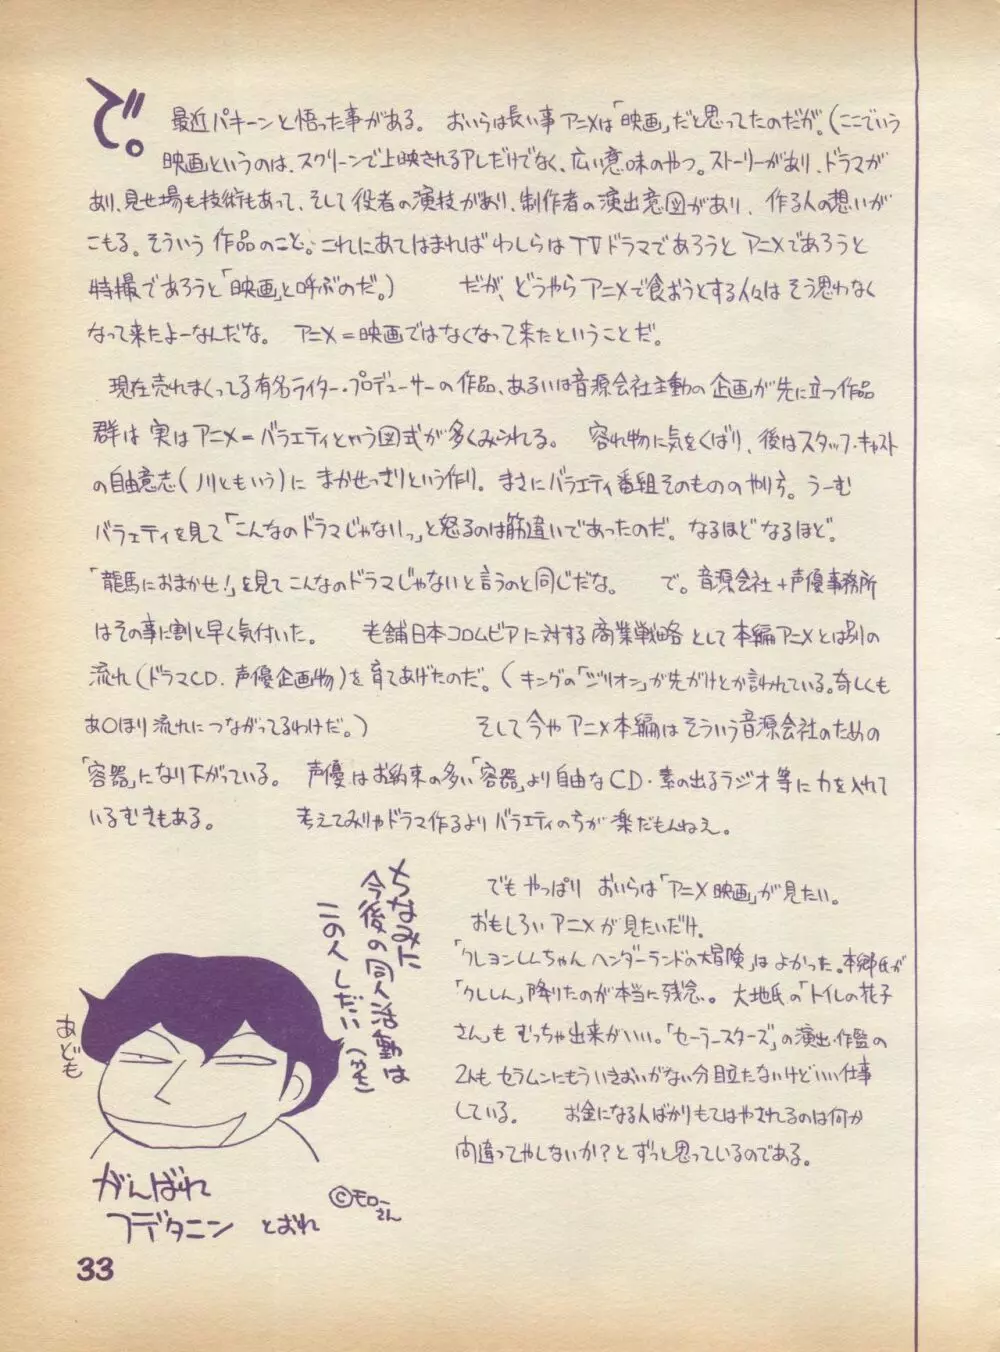 で。 最近パキーンと悟った事がある。 おいらは長い事アニメは「映画」だと思ってたのだが。(ここでいう
映画というのは、スクリーンで上映されるアレだけでなく、広い意味のやつ。ストーリーがあり、ドラマが
あり、見せ場も技術もあって、そして役者の演技があり、制作者の演出意図があり、作る人の想いが
こもる。そういう作品のこと。これにあてはまればわしらはTVドラマであろうとアニメであろうと
特撮であろうと「映画」と呼ぶのだ。) だが、どうやらアニメで食おうとする人々はそう思わなく
なって来たよーなんだな。 アニメ=映画ではなくなって来たということだ。
現在売れまくってる有名ライター・プロデューサーの作品、あるいは音源会社主動の企画が先に立つ作品
群は実はアニメ=バラエティという図式が多くみられる。 容れ物に気をくばり、後はスタッフ・キャスト
の自由意志(川ともいう)にまかせっきりという作り。まさにバラエティ番組そのもののやり方。うーむ
バラェティを見て「こんなのドラマじゃないっ」と怒るのは筋違いであったのだ。なるほどなるほど。
「龍馬におまかせ!」を見てこんなのドラマじゃないと言うのと同じだな。 で。音源会社+声優事務所
はその事に割と早く気付いた。 老舗日本コロムビアに対する商業戦略として本編アニメとは別の
流れ(ドラマCD.声優企画物)を育てあげたのだ。(キングの「ジリオン」が先がけとか言われている。奇しくも
あ〇ほり流れにつながってるわけだ。) そして今やアニメ本編はそういう音源会社のための
「容器」になり下がっている。 声優はお約束の多い「容器」より自由なCD・素の出るラジオ等に力を入れて
いるむきもある。 考えてみりゃドラマ作るよりバラエティの方が楽だもんねえ。
でもやっぱり おいらは「アニメ映画」が見たい。
おもしろいアニメが見たいだけ.
「クレヨンしんちゃんヘンダーランドの大冒険」はよかった。本郷氏が
「クレしん」降りたのが本当に残念。大地氏の「トイレの花子
さん」もむっちゃ出来がいい。「セーラースターズ」の演出・作監の
2人もセラムンにもういきおいがない分目立たないけどいい仕事
している。 お金になる人ばかりもてはやされるのは何か
間違ってやしないか?とずっと思っているのである。
ちなみに
今後の同人活動は
この人しだい
あども
がんばれ
フデタニン とおれ
©モローさん
33